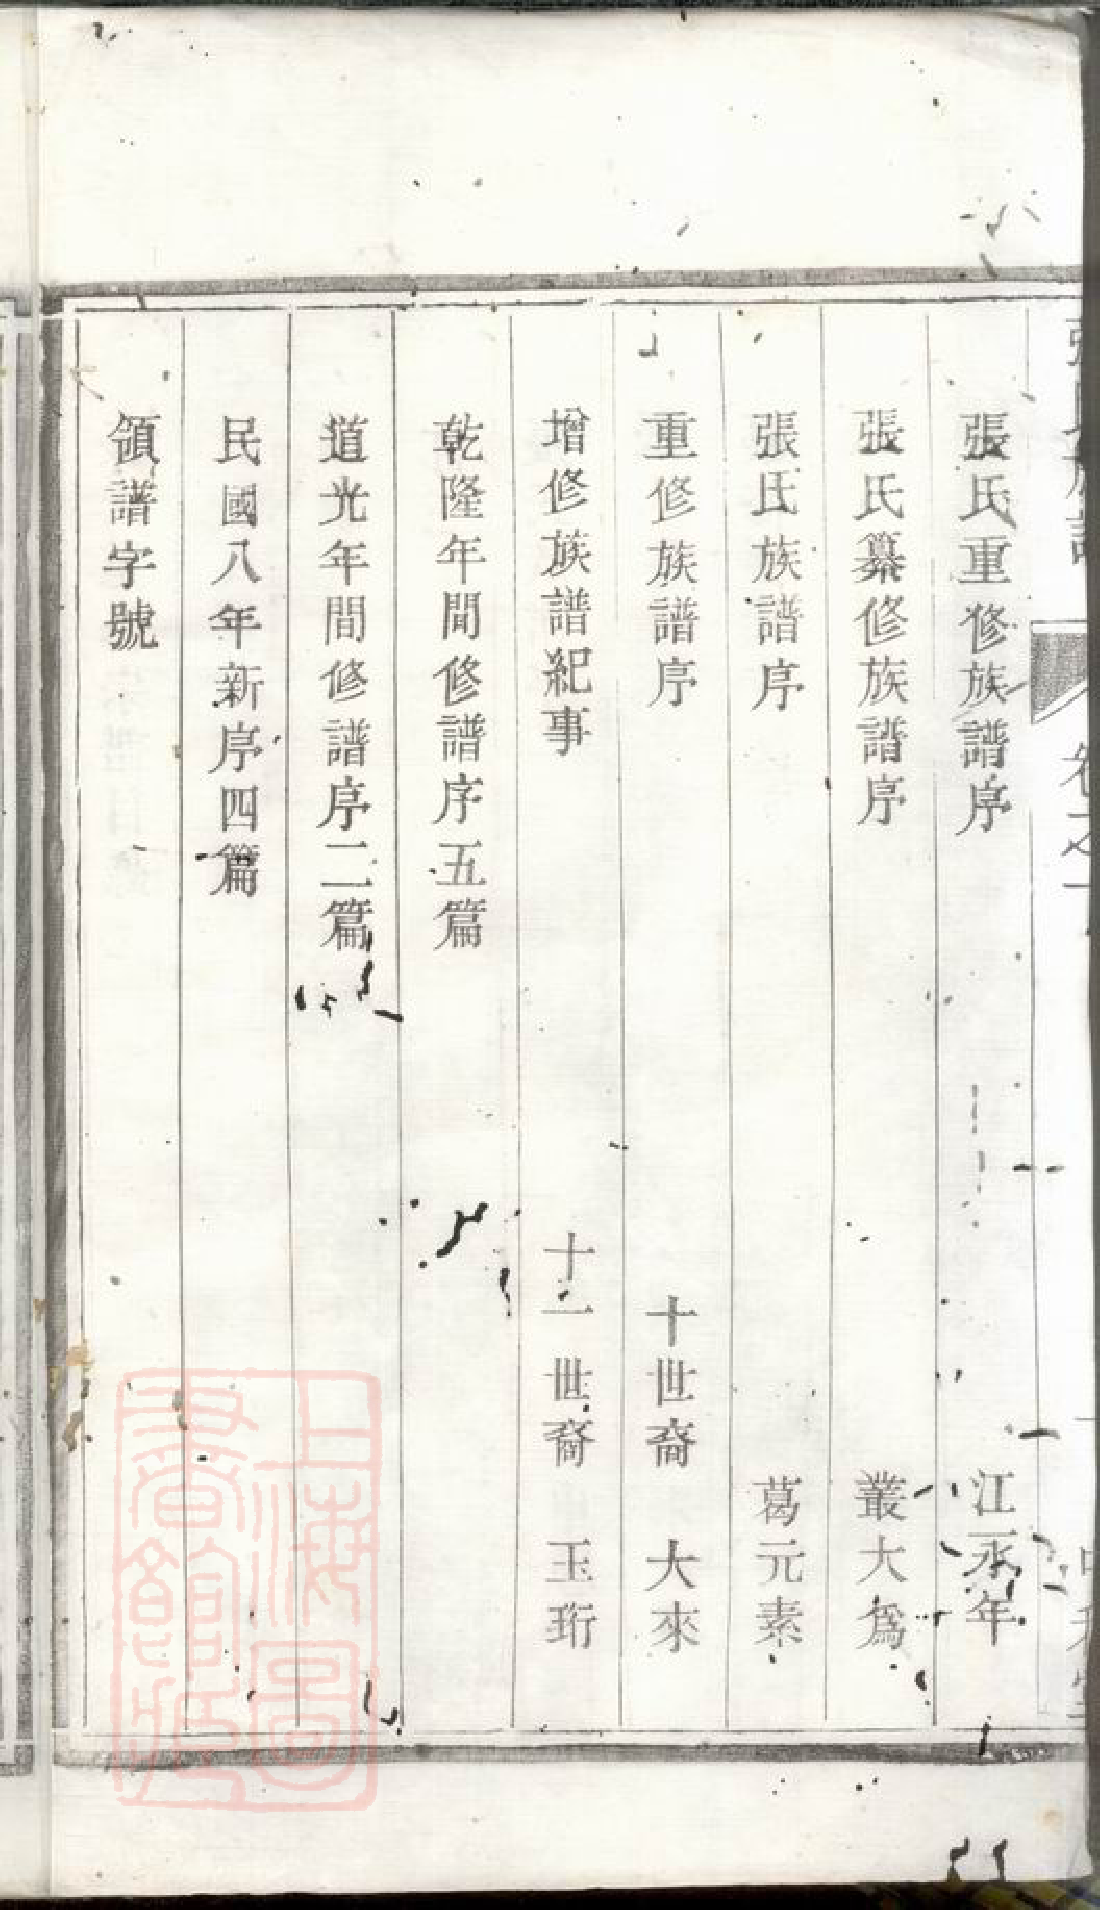 張氏重修族譜序 江永年
張氏纂修族譜序 叢大爲
張氏族譜序 葛元素
重修族譜序 十世裔 大來
增修族譜紀事 十一世裔 玉珩
乾隆年間修譜序五篇
道光年間修譜序二篇
民國八年新序四篇
領譜字號
上海圖書館藏